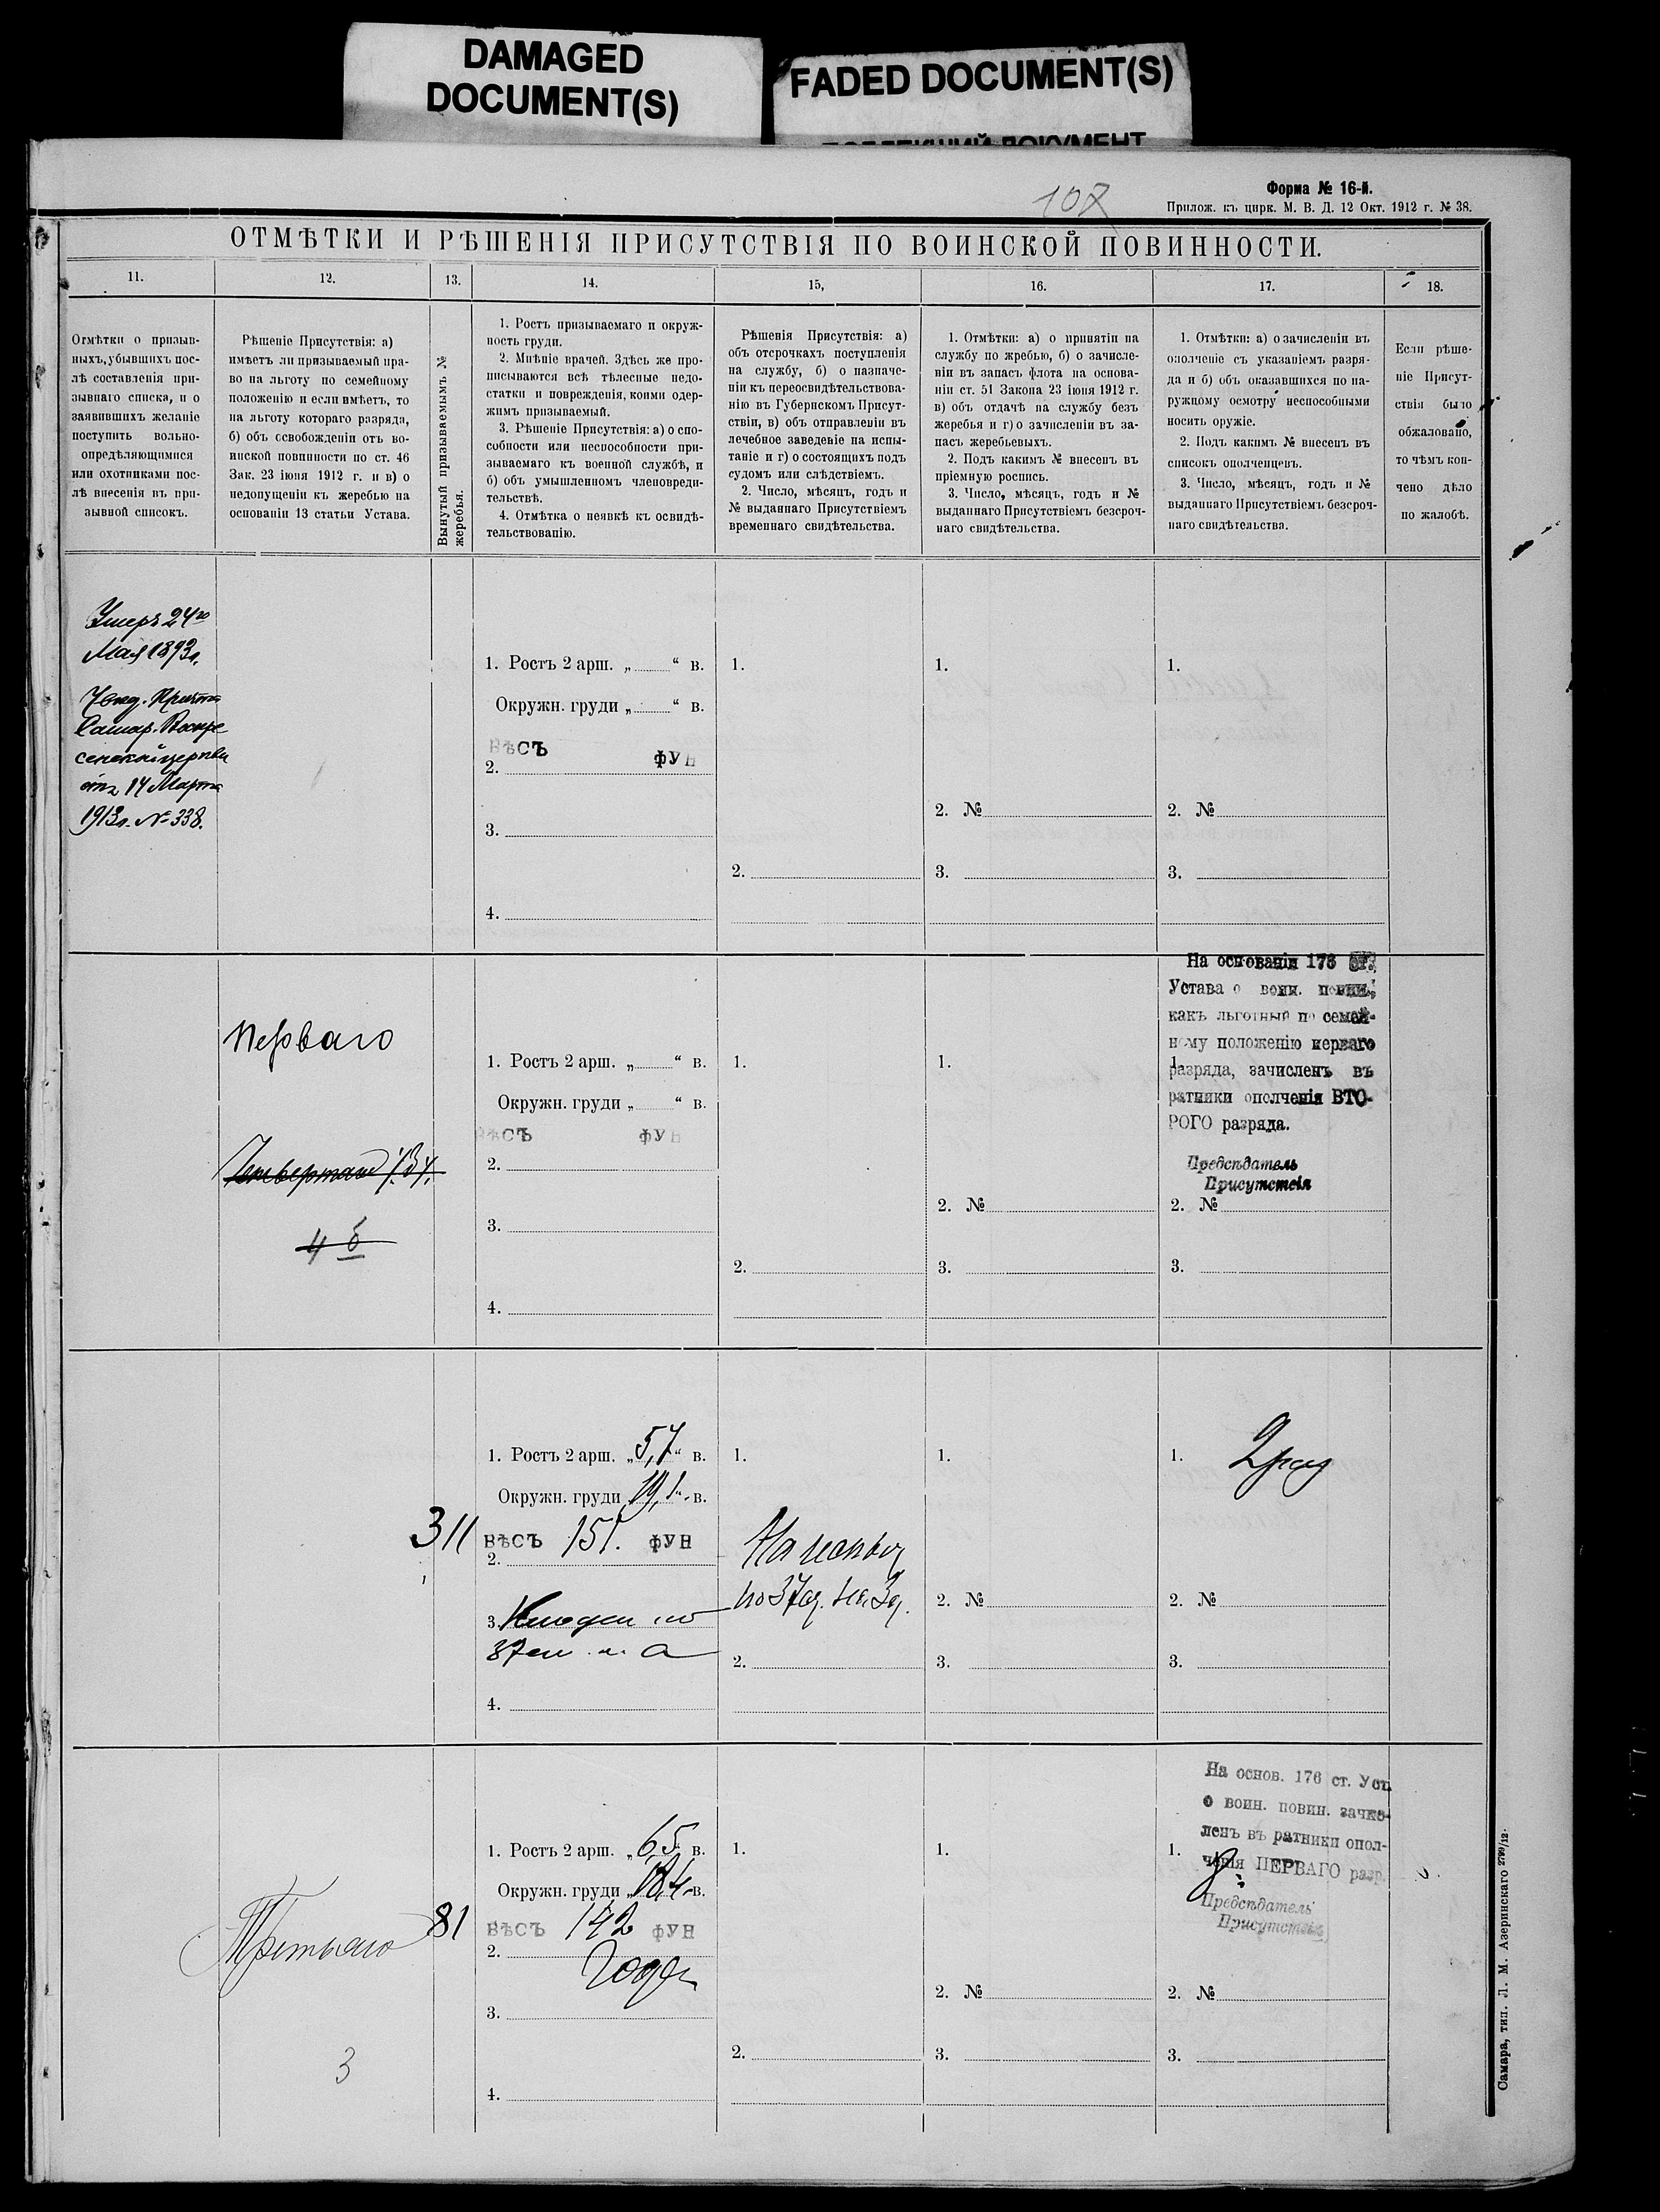 DAMAGED
DOCUMENT(S)
FADED DOCUMENT(S)
107
Форма № 16-й.
Прилож. къ цирк. М. В. Д. 12 Окт. 1912 г. № 38.
ОТМѢТКИ И РѢШЕНІЯ ПРИСУТСТВІЯ ПО ВОИНСКОЙ ПОВИННОСТИ.
11.
12.
13.
14.
15,
16.
17.
18.
Отмѣтки о призыв-
ныхъ, убывшихъ пос-
лѣ составленія при-
зывнаго списка, и о
заявившихъ желаніе
поступить вольно-
опредѣляющимися
или охотниками пос-
лѣ внесенія въ при-
зывной списокъ.
Рѣшеніе Присутствія: а)
имѣетъ ли призываемый пра-
во на льготу по семейному
положенію и если имѣетъ, то
на льготу котораго разряда,
б) объ освобожденіи отъ во-
инской повинности по ст. 46
Зак. 23 іюня 1912 г. и в) о
недопущеніи къ жеребью на
основаніи 13 статьи Устава.
Вынутый призываемымъ №
жеребья.
1. Ростъ призываемаго и окруж-
ность груди.
2. Мнѣніе врачей. Здѣсь же про-
писываются всѣ тѣлесные недо-
статки и поврежденія, коими одер-
жимъ призываемый.
3. Рѣшеніе Присутствія: а) о спо-
собности или неспособности при-
зываемаго къ военной службѣ, и
б) объ умышленномъ членовреди-
тельствѣ.
4. Отмѣтка о неявкѣ къ освидѣ-
тельствованію.
Рѣшенія Присутствія: а)
объ отсрочкахъ поступленія
на службу, б) о назначе-
ніи къ переосвидѣтельствова-
нію въ Губернскомъ Присут-
ствіи, в) объ отправленіи въ
лечебное заведеніе на испы-
таніе и г) о состоящихъ подъ
судомъ или слѣдствіемъ.
2. Число, мѣсяцъ, годъ и
№ выданнаго Присутствіемъ
временнаго свидѣтельства.
1. Отмѣтки: а) о принятіи на
службу по жребью, б) о зачисле-
ніи въ запасъ флота на основа-
ніи ст. 51 Закона 23 іюня 1912 г.
в) объ отдачѣ на службу безъ
жеребья и г) о зачисленіи въ за-
пасъ жеребьевыхъ.
2. Подъ какимъ № внесенъ въ
пріемную роспись.
3. Число, мѣсяцъ, годъ и №
выданнаго Присутствіемъ безсроч-
наго свидѣтельства.
1. Отмѣтки: а) о зачисленіи въ
ополченіе съ указаніемъ разря-
да и б) объ оказавшихся по на-
ружному осмотру неспособными
носить оружіе.
2. Подъ какимъ № внесенъ въ
списокъ ополченцевъ.
3. Число, мѣсяцъ, годъ и №
выданнаго Присутствіемъ безсроч-
наго свидѣтельства.
Если рѣше-
ніе Присут-
ствія было
обжаловано,
то чѣмъ кон-
чено дѣло
по жалобѣ.
Умеръ 24го
Мая 1893г.
Увед. Причта
Самар. Воскре
сенской церкви
отъ 14 Марта
1913г. № 338.
1. Ростъ 2 арш. „ “ в.
Окружн. груди „ “ в.
ВѢСЪ ФУН
2.
3.
4.
1.
2.
1.
2. №
3.
1.
2. №
3.
Перваго
Четвертаго
4 б
1. Ростъ 2 арш. „ “ в.
Окружн. груди „ “ в.
ВѢСЪ ФУН
2.
3.
4.
1.
2.
1.
2. №
3.
На основаніи 176 ст.
Устава о воин. повин.,
какъ льготный по семей-
ному положенію перваго
1.
разряда, зачисленъ въ
ратники ополченія ВТО-
РОГО разряда.
Предсѣдатель
Присутствія
2. №
3.
311
1. Ростъ 2 арш. „5,7“ в.
Окружн. груди 19,1 в.
ВѢСЪ 151. ФУН
2.
3.
37 ст. а
4.
1.
2.
1.
2. №
3.
1. 2 раз
2. №
3.
Третьяго
3
81
1. Ростъ 2 арш. „6,5“ в.
Окружн. груди „18,4 в.
ВѢСЪ 142 ФУН
2.
Годен
3.
4.
1.
2.
1.
2. №
3.
На основ. 176 ст. Уст.
о воин. повин. зачис-
ленъ въ ратники опол-
1.
ченія ПЕРВАГО разр.
Предсѣдатель
Присутствія
2. №
3.
Самара, тип. Л. М. Азеринскаго 2799/12.